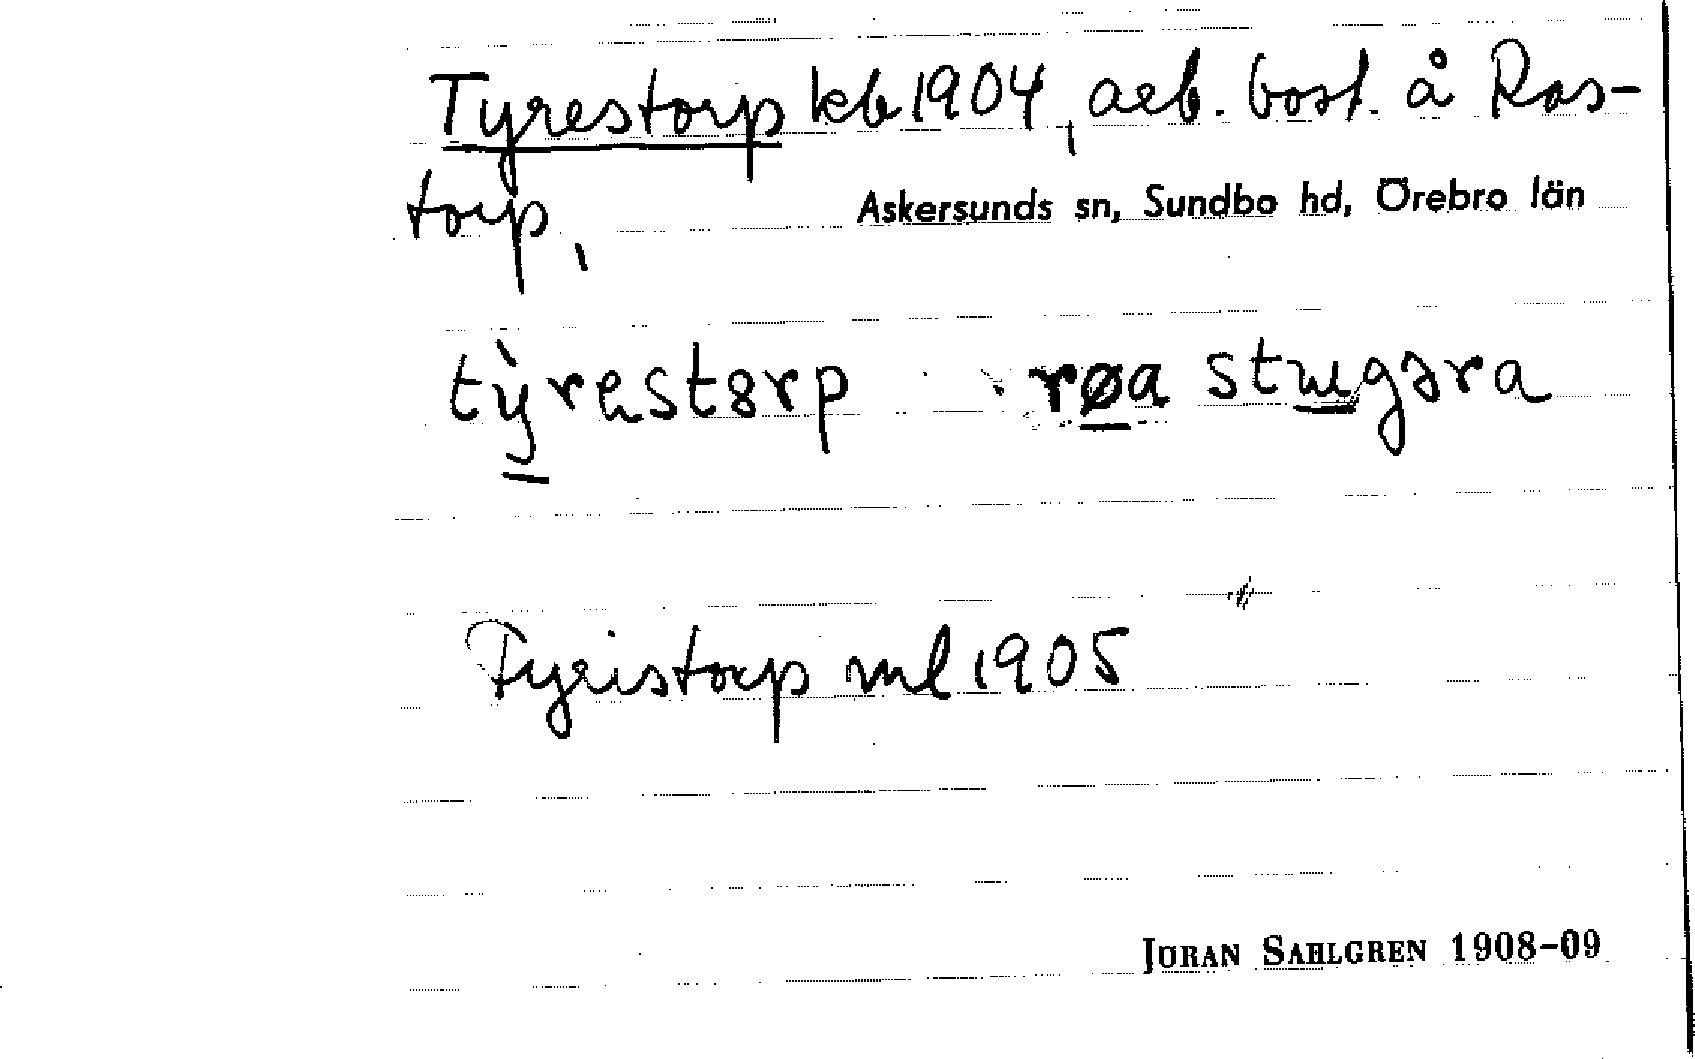 Tyrestorp kb 1904, arb. bost. å Ras-
torp,
Askersunds sn, Sundbo hd, Örebro län
tỳrestorp røa stugɔra
Tyristorp ml 1905
JÖRAN SAHLGREN 1908-09